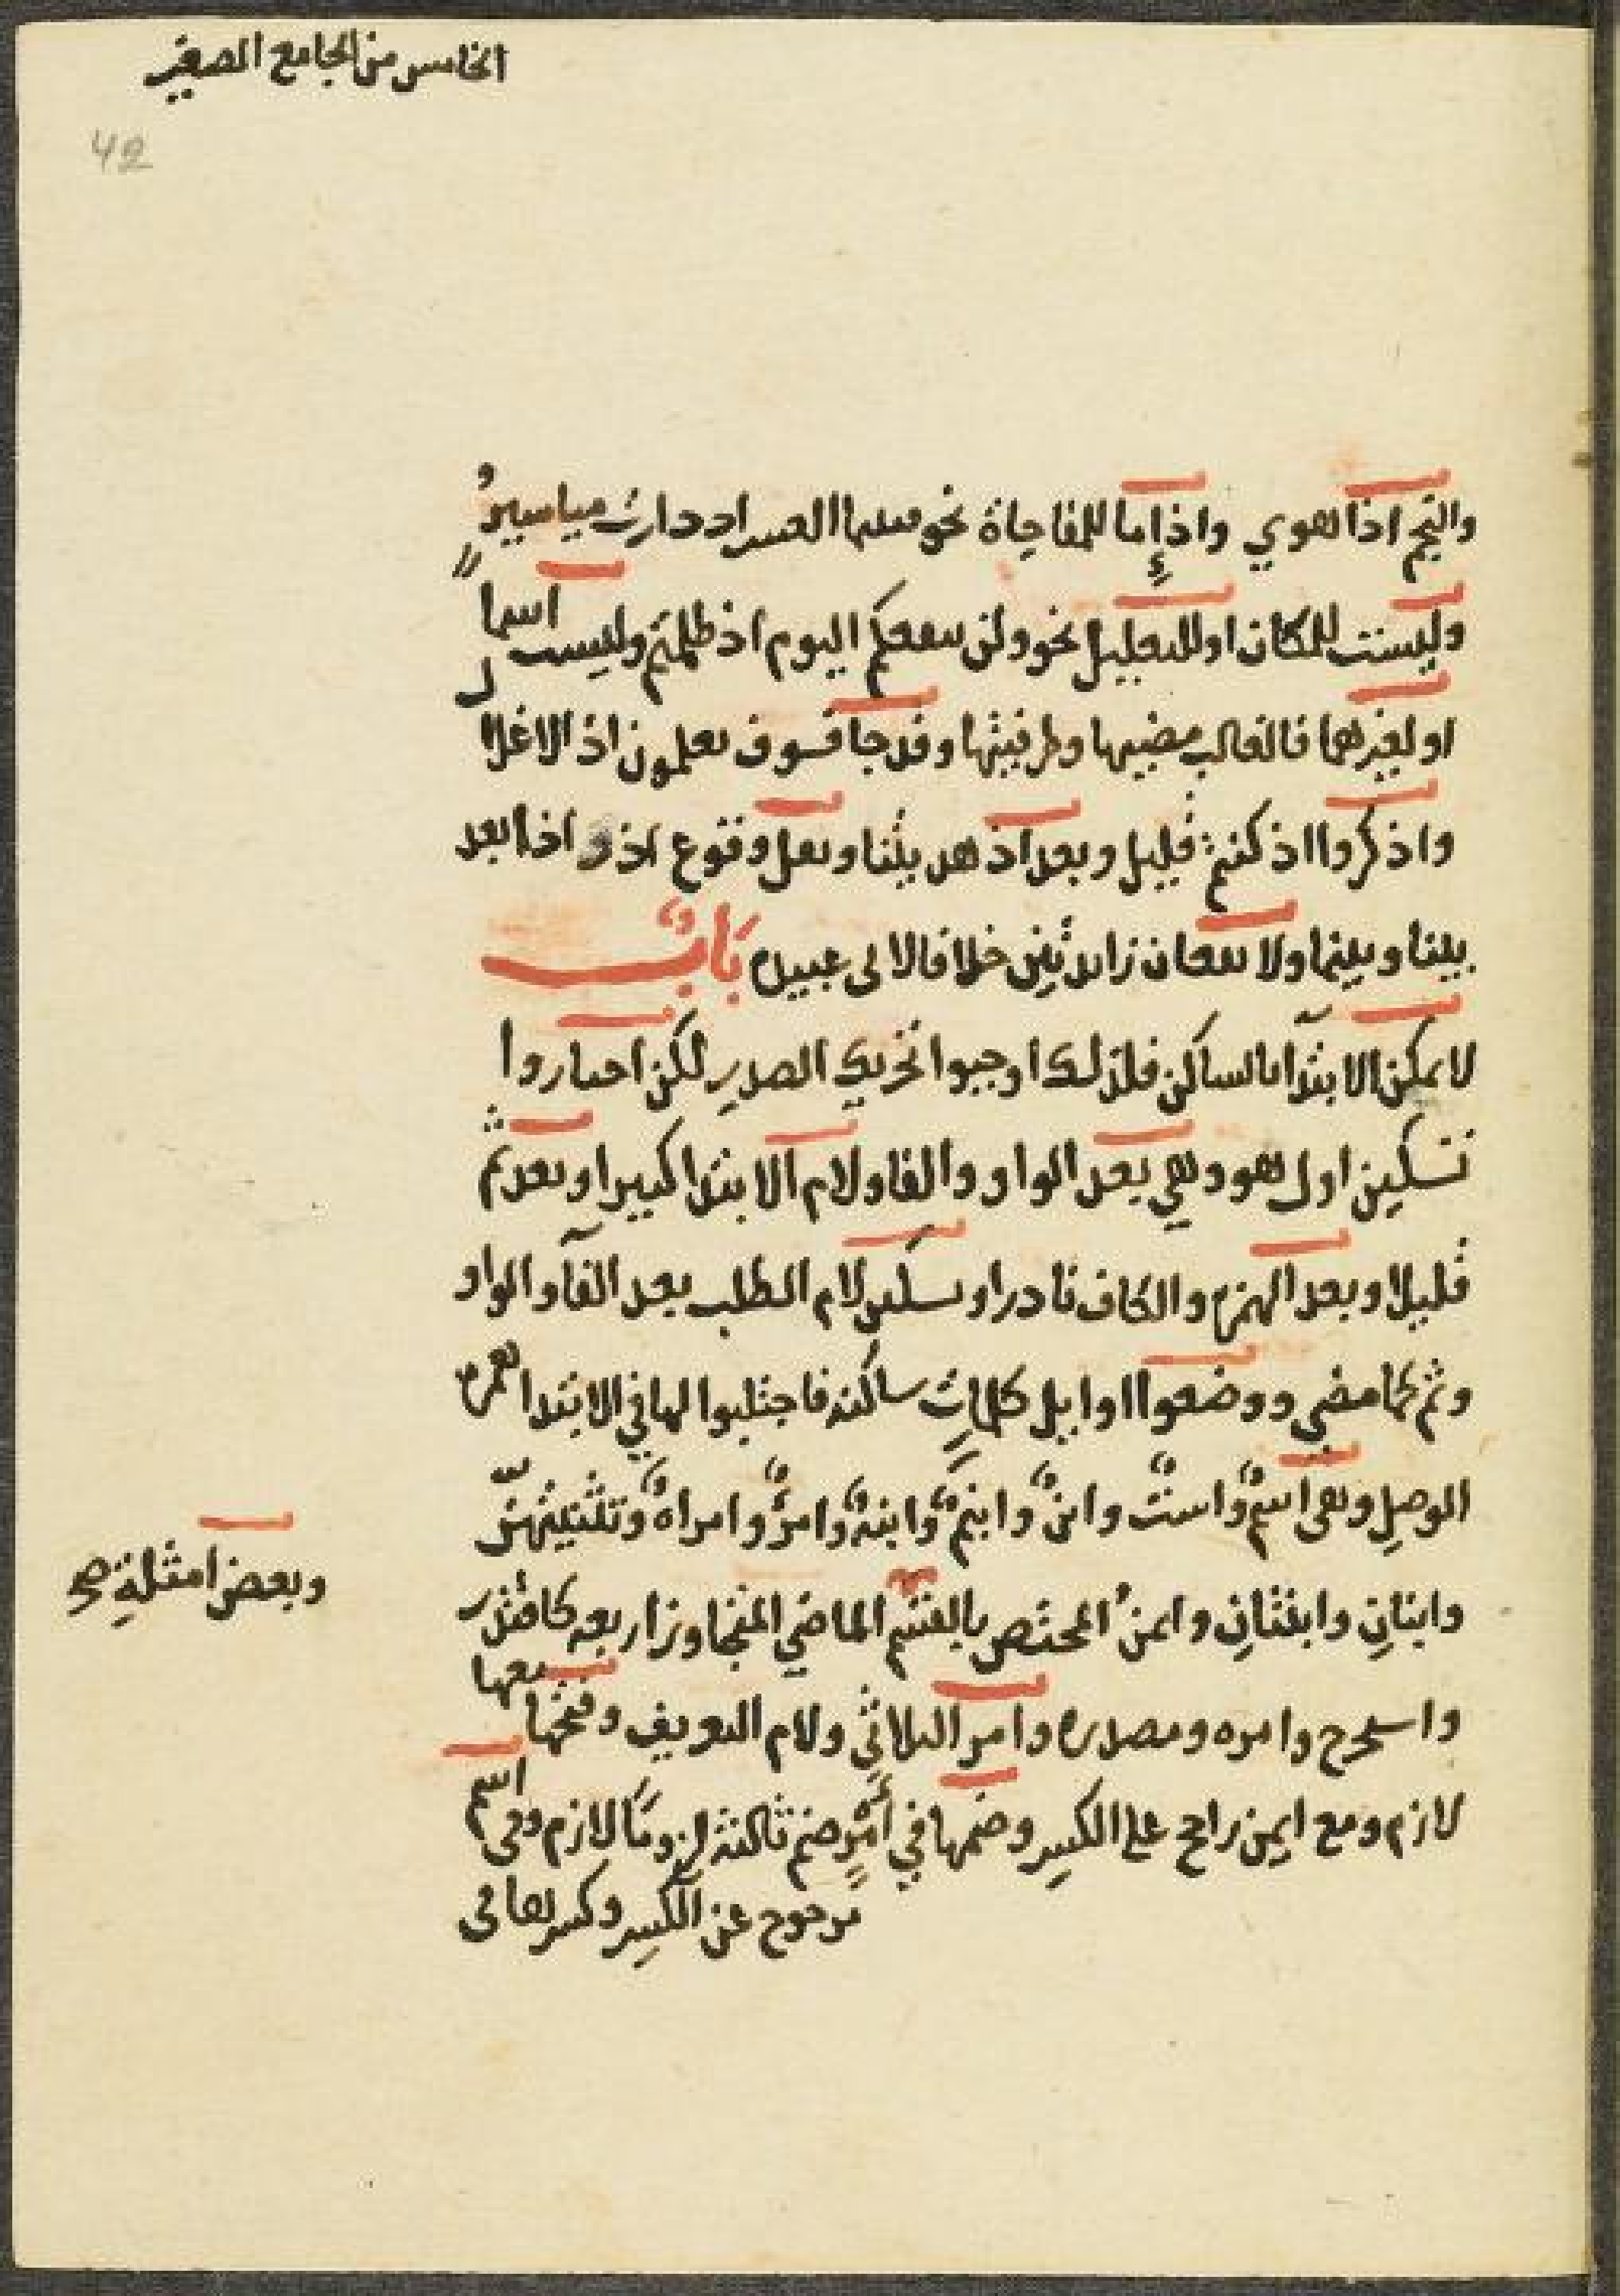 الخامس من الجامع الصغير
42
والنجم اذا هوي واذ اما للمفاجاة نحو فبينما العسر اذ دارت مياسيرُ
وليست للمكان او للتعليل نحو ولن ينفعكم اليوم اذ ظلمتم وليست اسما
او لغيرهما فالغالب مضيها وظرفيتها وقد جا فسوف يعلمون اذ الاغلال
واذكروا اذ كنتم قليل وبعد اذ هديتنا ونقل وقوع اذ واذا بعد
بينا وبينما ولا يقعان زائدتين خلافا لابى عبيده بَابٌ
لا يمكن الابتدآ بالساكن فلذلك اوجبوا تحريك الصدرِ لكن اختاروا
تسكين اول هو وهي بعد الواو والفا ولام الابتدا كثيرا وبعد ثم
قليلا وبعد الهمزه والكاف نادرا وتسكين لام الطلب بعد الفآ والواو
وثم كما مضي ووضعوا اوايل كلماتٍ ساكنه فاجتلبوا لها في الابتدا همزه
الوصلِ وهى اسمٌ واستٌ وابنٌ وابنمٌ وابنةٌ وامرؤٌ وامراةٌ وتثنيتهنّ
وابنانِ وابنتانِ وايمنُ المختص بالقسم الماضي المتجاوز اربعه كاقتدر
وبعض امثلةِ صح
واستخرج وامره ومصدره وامر الثلاثي ولام التعريف وفتحها معها
لازم ومع ايمن راجح على الكسر وضمها في امرٍ ضم ثالثه لزومًا لازم وفى اسم
مرجوح عن الكسر وكسرها فى